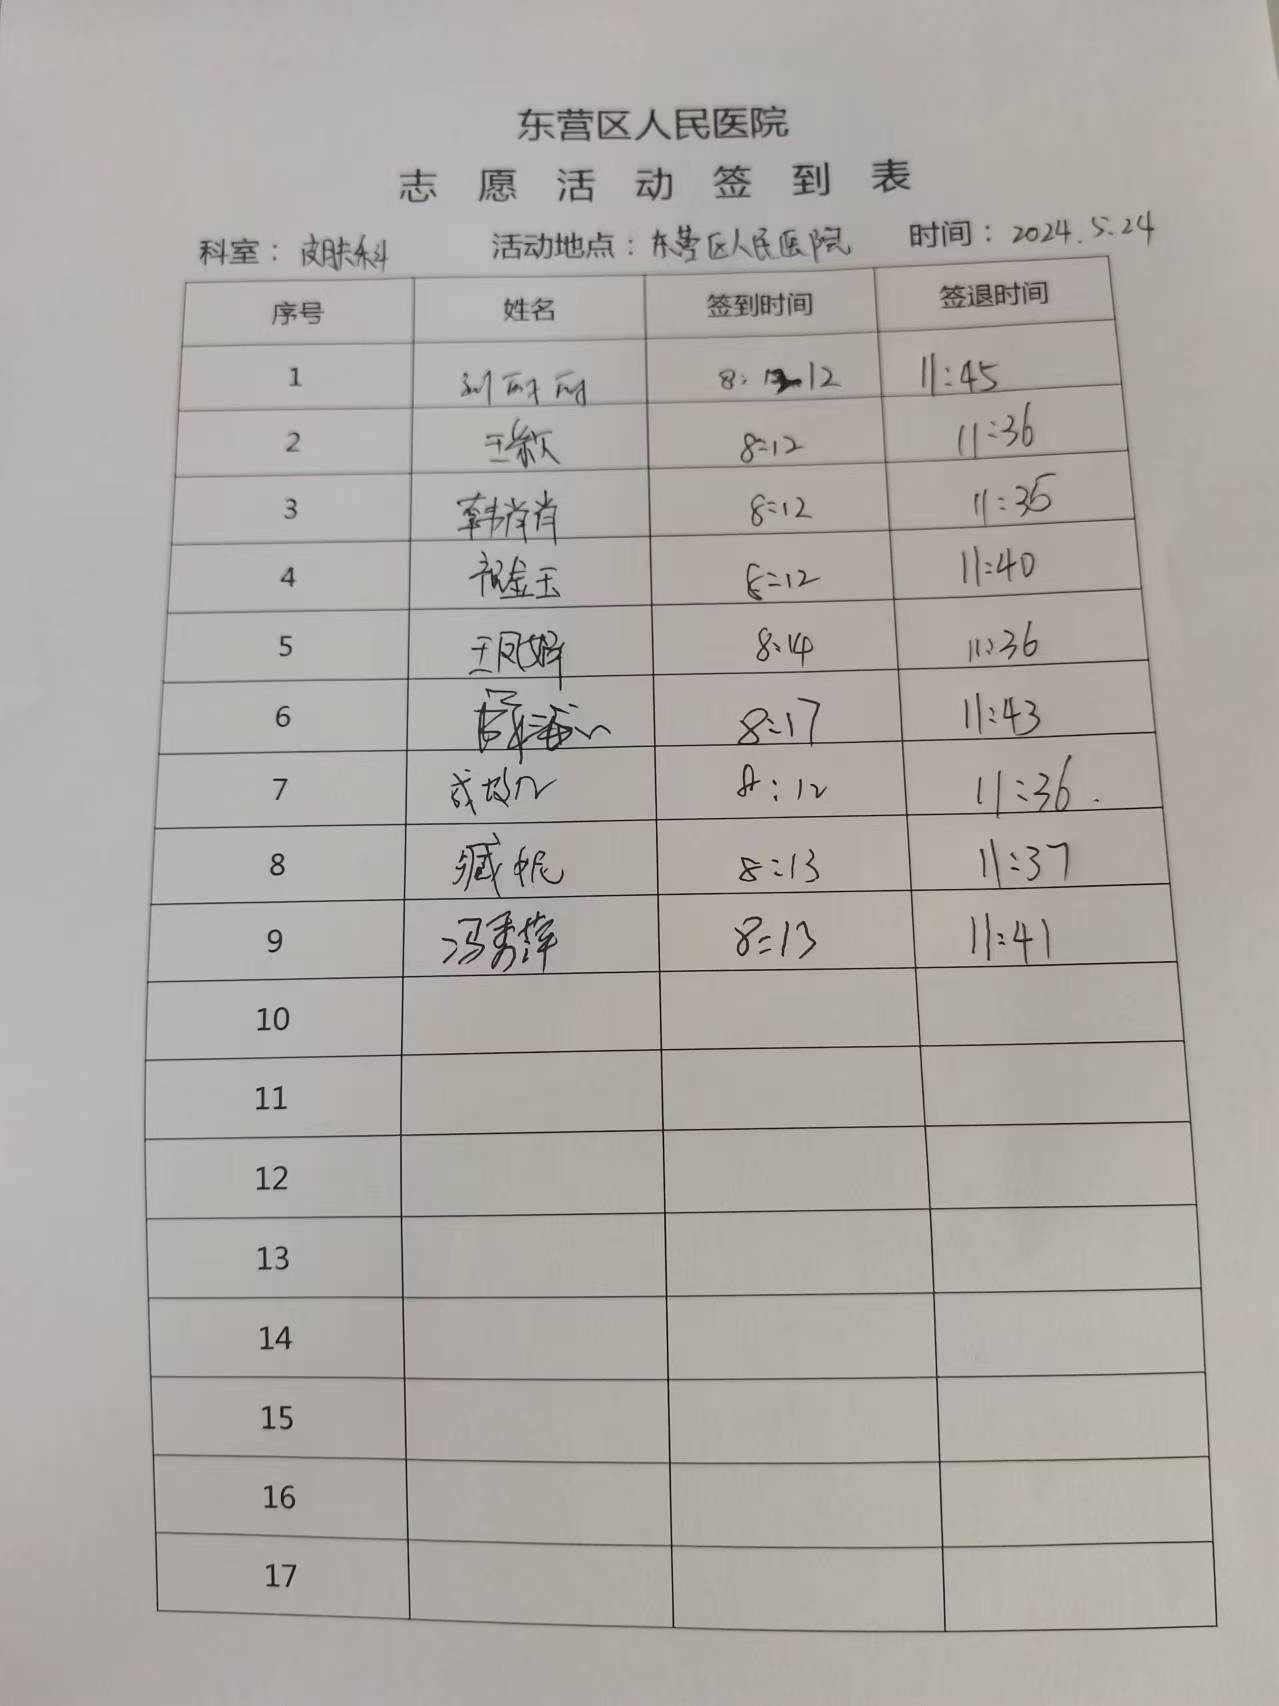 东营区人民医院
志愿活动签到表
科室：皮肤科 活动地点：东营区人民医院 时间：2024.5.24
序号 姓名 签到时间 签退时间
1 8:12 11:45
2 王 8:12 11:36
3 韩肖肖 8:12 11:35
4 祝金玉 8:12 11:40
5 王凤婷 8:14 11:36
6 8:17 11:43
7 8:12 11:36.
8 臧妮 8:13 11:37
9 冯秀萍 8:13 11:41
10
11
12
13
14
15
16
17